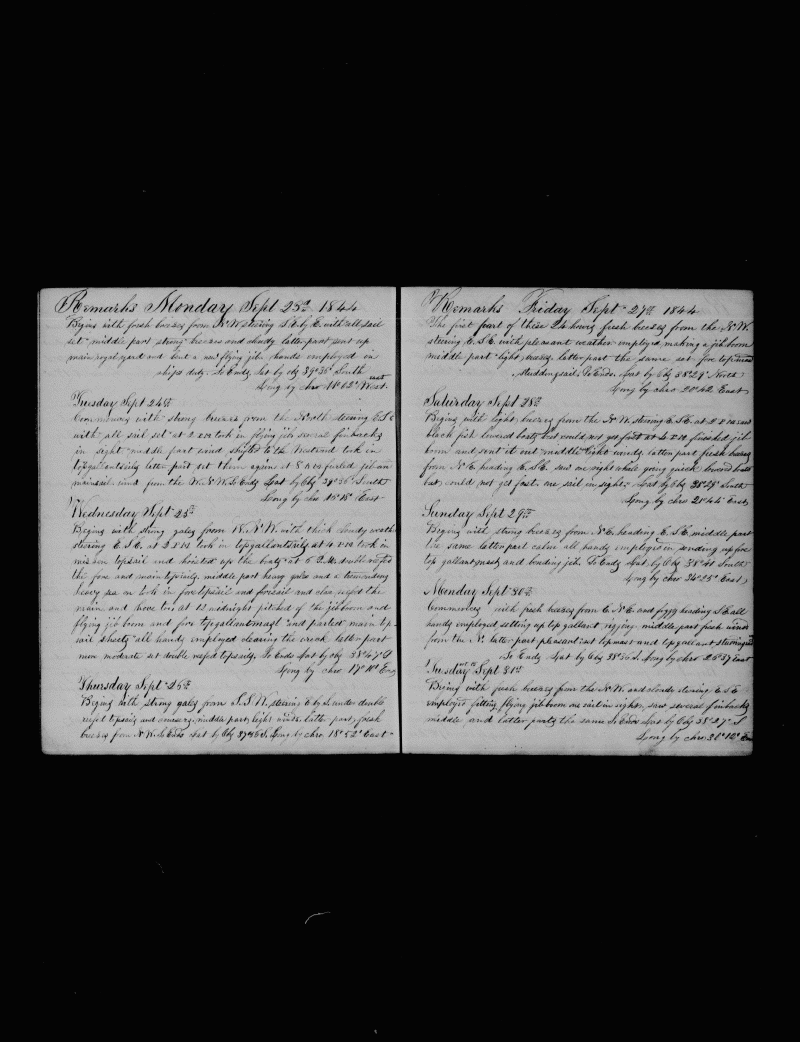 Remarks Monday Sept 23d 1844
Begins with fresh breezes from N.W. steering S.E. by E. with all sail
set middle part strong breezes and cloudy latter part sent up
main royal yard and bent a new flying jib hands employed in
ships duty. So Ends Lat by obs 39°35' South
Long by chro 11°02' West east
Tuesday Sept 24th
Commences with strong breezes from the North steering E.S.E
with all sail set at 2 P.M. took in flying jib several finbacks
in sight middle part wind shifted to the Westward took in
topgallantsails latter part set them again at 8 A.M. furled jib an
mainsail wind from the W.N.W. So Ends Lat by Obs 39°36' South
Long by chro 15°18' East
Wednesday Sept 25th
Begins with strong gales from W.N.W. with thick cloudy weath
steering E.S.E. at 2 P.M. took in topgallantsails at 4 P.M. took in
mizzen topsail and hoisted up the boats at 5 P.M. double reefed
the fore and main topsails middle part heavy gales and a tremendous
heavy sea on took in foretopsail and foresail and close reefed the
main and hove too at 12 midnight pitched of the jibboom and
flying jib boom and fore topgallantmast and parted main top
sail sheets all hands employed clearing the wreck latter part
more moderate set double reefed topsails. So Ends Lat by Obs 38°47' S
Long by chro 17°10' Eas
Thursday Sept 26th
Begins with strong gales from S.S.W. steering E by S. under double
reefd topsails and courses, middle part light winds latter part fresh
breezes from N.W. So Ends Lat by Obs S. Long by chro. 18°52' East
Remarks Friday Sept 27th 1844
The first part of these 24 hours fresh breezes from the N.W.
steering E.S.E with pleasant weather employed making a jib boom
middle part light breezes. latter part the same set fore topmast
Studdingsail. So Ends Lat by Obs 38°29' North
Long by chro 20°42 East
Saturday Sept 28th
Begins with light breezes from the N.W. steering E.S.E. at 2 P.M. saw
black fish lowered boats but could not get fast at 4 P.M. finished jib
boom and sent it out middle light winds. latter part fresh breezes
from N.E. heading E.S.E. saw one right whale going quick lowered boats
but could not get fast. one sail in sight. Lat by Obs 38°28' South
Long by chro 21°44' East
Sunday Sept 29th
Begins with strong breezes from N.E. heading E.S.E. middle part
the same latter part calm all hands employed in sending up fore
top gallant mast and bending jib. So Ends Lat by Obs 38°41' South
Long by chro 24°25' East
Monday Sept 30th
Commences with fresh breezes from E.N.E. and foggy heading S.E. all
hands employed setting up top gallant rigging. middle part fresh winds
from the N. latter part pleasant set topmast and topgallant steeringsail
So Ends Lat by Obs 38°36' S. Long by chro 26°37 East
Tuesday Sept 31st
Begins with fresh breezes from the N.W. and cloudy steering E.S.E
employed fitting flying jib boom one sail in sight, saw several finbacks
middle and latter parts the same So Ends Lat by Obs 38°27' S
Long by chro 30°12' Eas